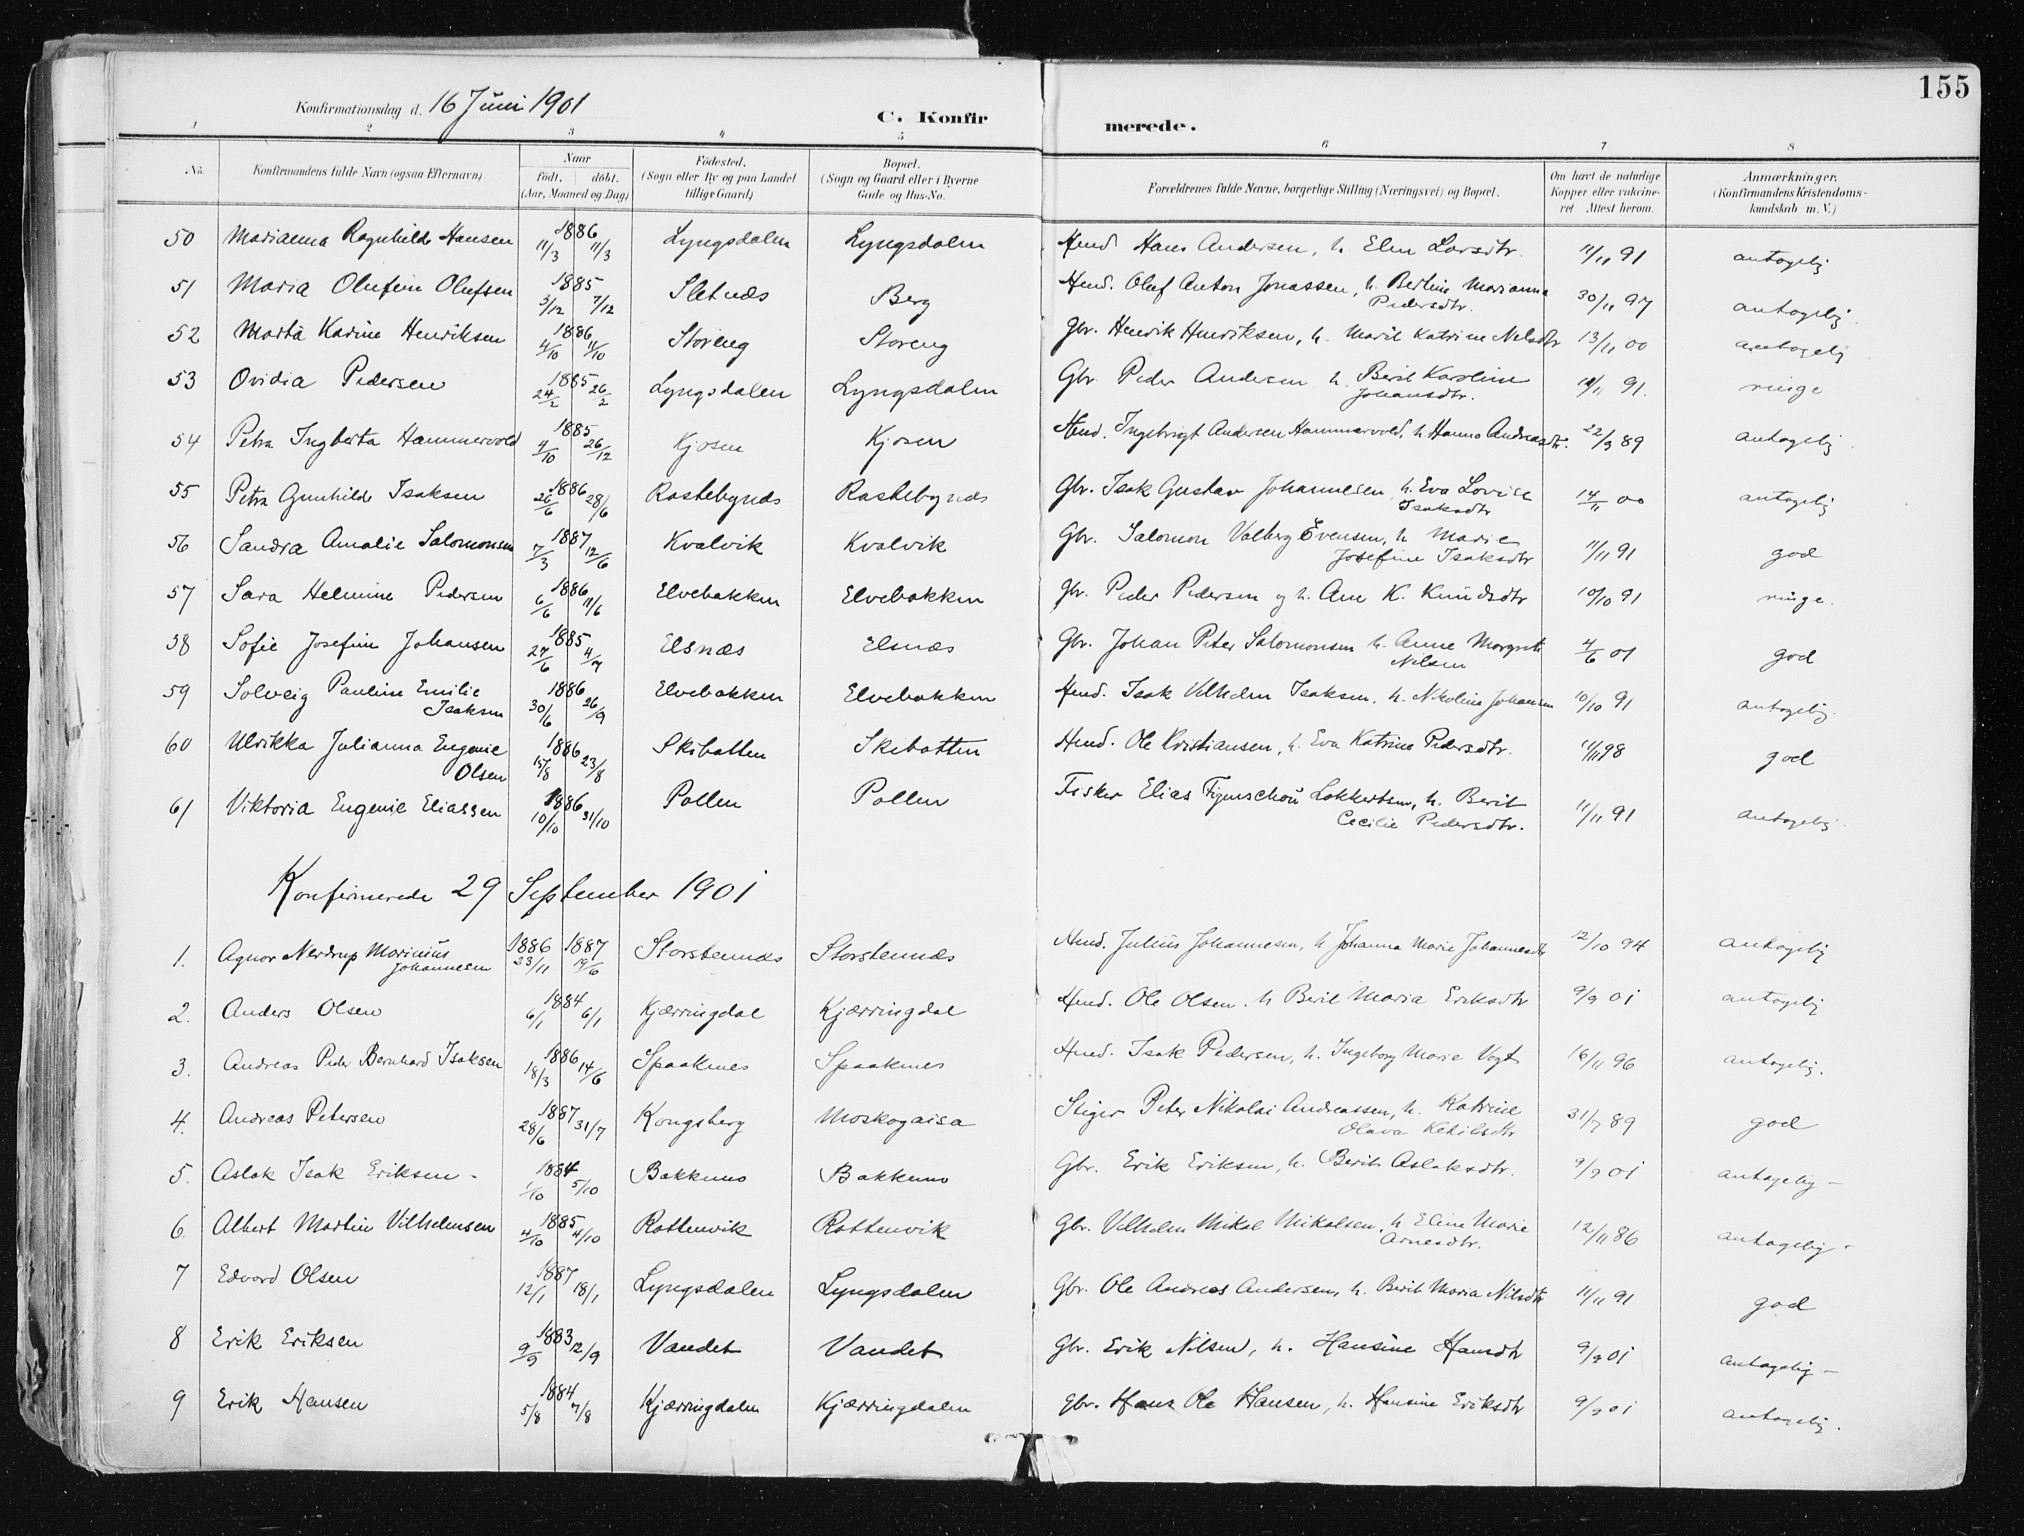 155
Konfirmationsdag d. 16 Juni 1901
C. Konfirmerede.
1 2 3 4 5 6 7 8
No. Konfirmandens fulde Navn (ogsaa Efternavn) Naar födt. döbt. (Aar, Maaned og Dag) Födested. (Sogn eller By og paa Landet tillige Gaard) Bopæl. (Sogn og Gaard eller i Byerne Gade og Hus-No. Forældrenes fulde Navne, borgerlige Stilling (Næringsvei) og Bopæl. Om havt de naturlige Kopper eller vaccineret Attest herom. Anmærkninger. (Konfirmandens Kristendomskundskab m. V.)
50 Marianna Ragnhild Hansen 1886 11/3 11/3 Lyngsdalen Lyngsdalen Hmd. Hans Andersen, h. Elen Larsdtr. 11/11 91 antagelig
51 Maria Olufine Olufsen 1885 3/12 7/12 Sletnæs Berg Hmd. Oluf Anton Jonassen, h. Berline Marianna
Pedersdtr. 30/11 97 antagelig.
52 Marta Karine Henriksen 1886 4/10 11/10 Storeng Storeng Gbr. Henrik Henriksen, h. Marit Katrine Nelsdtr 13/11 00 antagelig
53 Ovidia Pedersen 1885 24/2 26/2 Lyngsdalen Lyngsdalen Gbr. Peder Andersen h. Berit Karoline
Johansdtr. 91. ringe
54 Petra Ingberta Hammervold 1885 4/10 26/12 Kjosen Kjosen Hmd. Ingebrigt Andersen Hammervold, h Hanna Andreasdtr. 22/9 89 antagelig
55 Petra Gunhild Isaksen 1886 26/6 28/6 Rastebynæs Rastebynæs Gbr. Isak Gustav Johannesen, h. Eva Lovise
Isaksdtr 14/11 00 antagelig
56 Sandra Amalie Salomonsen 1887 7/3 12/6 Kvalvik Kvalvik Gbr. Salomon Valberg Evensen, h Marie
Josefine Isaksdtr 11/11 91 god
57 Sara Helmine Pedersen 1886 6/6 11/6 Elvebakken Elvebakken Gbr. Peder Pedersen og h. Ane K. Knudsdtr 10/10 91 ringe.
58 Sofie Josefine Johansen 1885 27/6 4/7 Elsnæs Elsnæs Gbr. Johan Peter Salomonsen h. Anne Margrete
Nilsen 4/6 01 god
59 Solveig Pauline Emilie
Isaksen 1886 30/6 26/9 Elvebakken Elvebakken Hmd. Isak Vilhelm Isaksen, h. Nikoline Johansen 10/10 91 antagelig.
60 Ulrikka Julianna Eugenie
Olsen 1886 15/8 23/8 Skibotten Skibotten Hmd. Ole Kristiansen, h. Eva Katrine Pedersdtr. 11/11 98 god
61 Viktoria Eugenie Eliassen 1886 10/10 31/10 Pollen Pollen Fisker Elias Figenschou Lokkertsen, h. Berit
Cecilie Pedersdtr. 11/11 91 antagelig
Konfirmerede 29 September 1901
1. Agnor Nerdrup Marinius
Johannesen 1886 23/11 1887 19/6 Storstennæs Storstennæs Hmd. Julius Johannesen, h Johanna Marie Johannesdtr 12/10 94 antagelig
2. Anders Olsen 1884 6/1 6/1 Kjærringdal Kjærringdal Hmd. Ole Olsen. h Berit Maria Eriksdtr 9/9 01 antagelig
3. Andreas Peder Bernhard Isaksen 1886 18/3 14/6 Spaaknes Spaaknes Hmd. Isak Pedersen, h. Ingeborg Marie Vogt 16/11 96 antagelig.
4. Andreas Petersen 1887 28/6 31/7 Kongsberg Moskogaisa Stiger Peter Nikolai Andreassen, h. Katrine
Olava Ketilsdtr 31/7 89 god
5. Aslak Isak Eriksen - 1884 1/10 5/10 Bakkenes Bakkenes Gbr. Erik Eriksen, h. Berit Aslaksdtr. 9/9 01 antagelig -
6. Albert Martin Vilhelmsen 1885 4/10 4/10 Rottenvik Rottenvik Gbr. Vilhelm Mikal Mikalsen, h Eline Marie
Arnesdtr. 12/11 86 antagelig -
7 Edvard Olsen 1887 12/1 18/1 Lyngsdalen Lyngsdalen Gbr. Ole Andreas Andersen, h. Berit Maria Nilsdtr 11/11 91 god
8 Erik Eriksen 1883 9/9 12/9 Vandet Vandet Gbr. Erik Nilsen, h. Hansine Hansdtr 9/9 01 antagelig -
9 Erik Hansen 1884 5/8 7/8 Kjærringdalen Kjærringdalen Gbr. Hans Ole Hansen, h. Hansine Eriksdtr 9/9 01 antagelig.